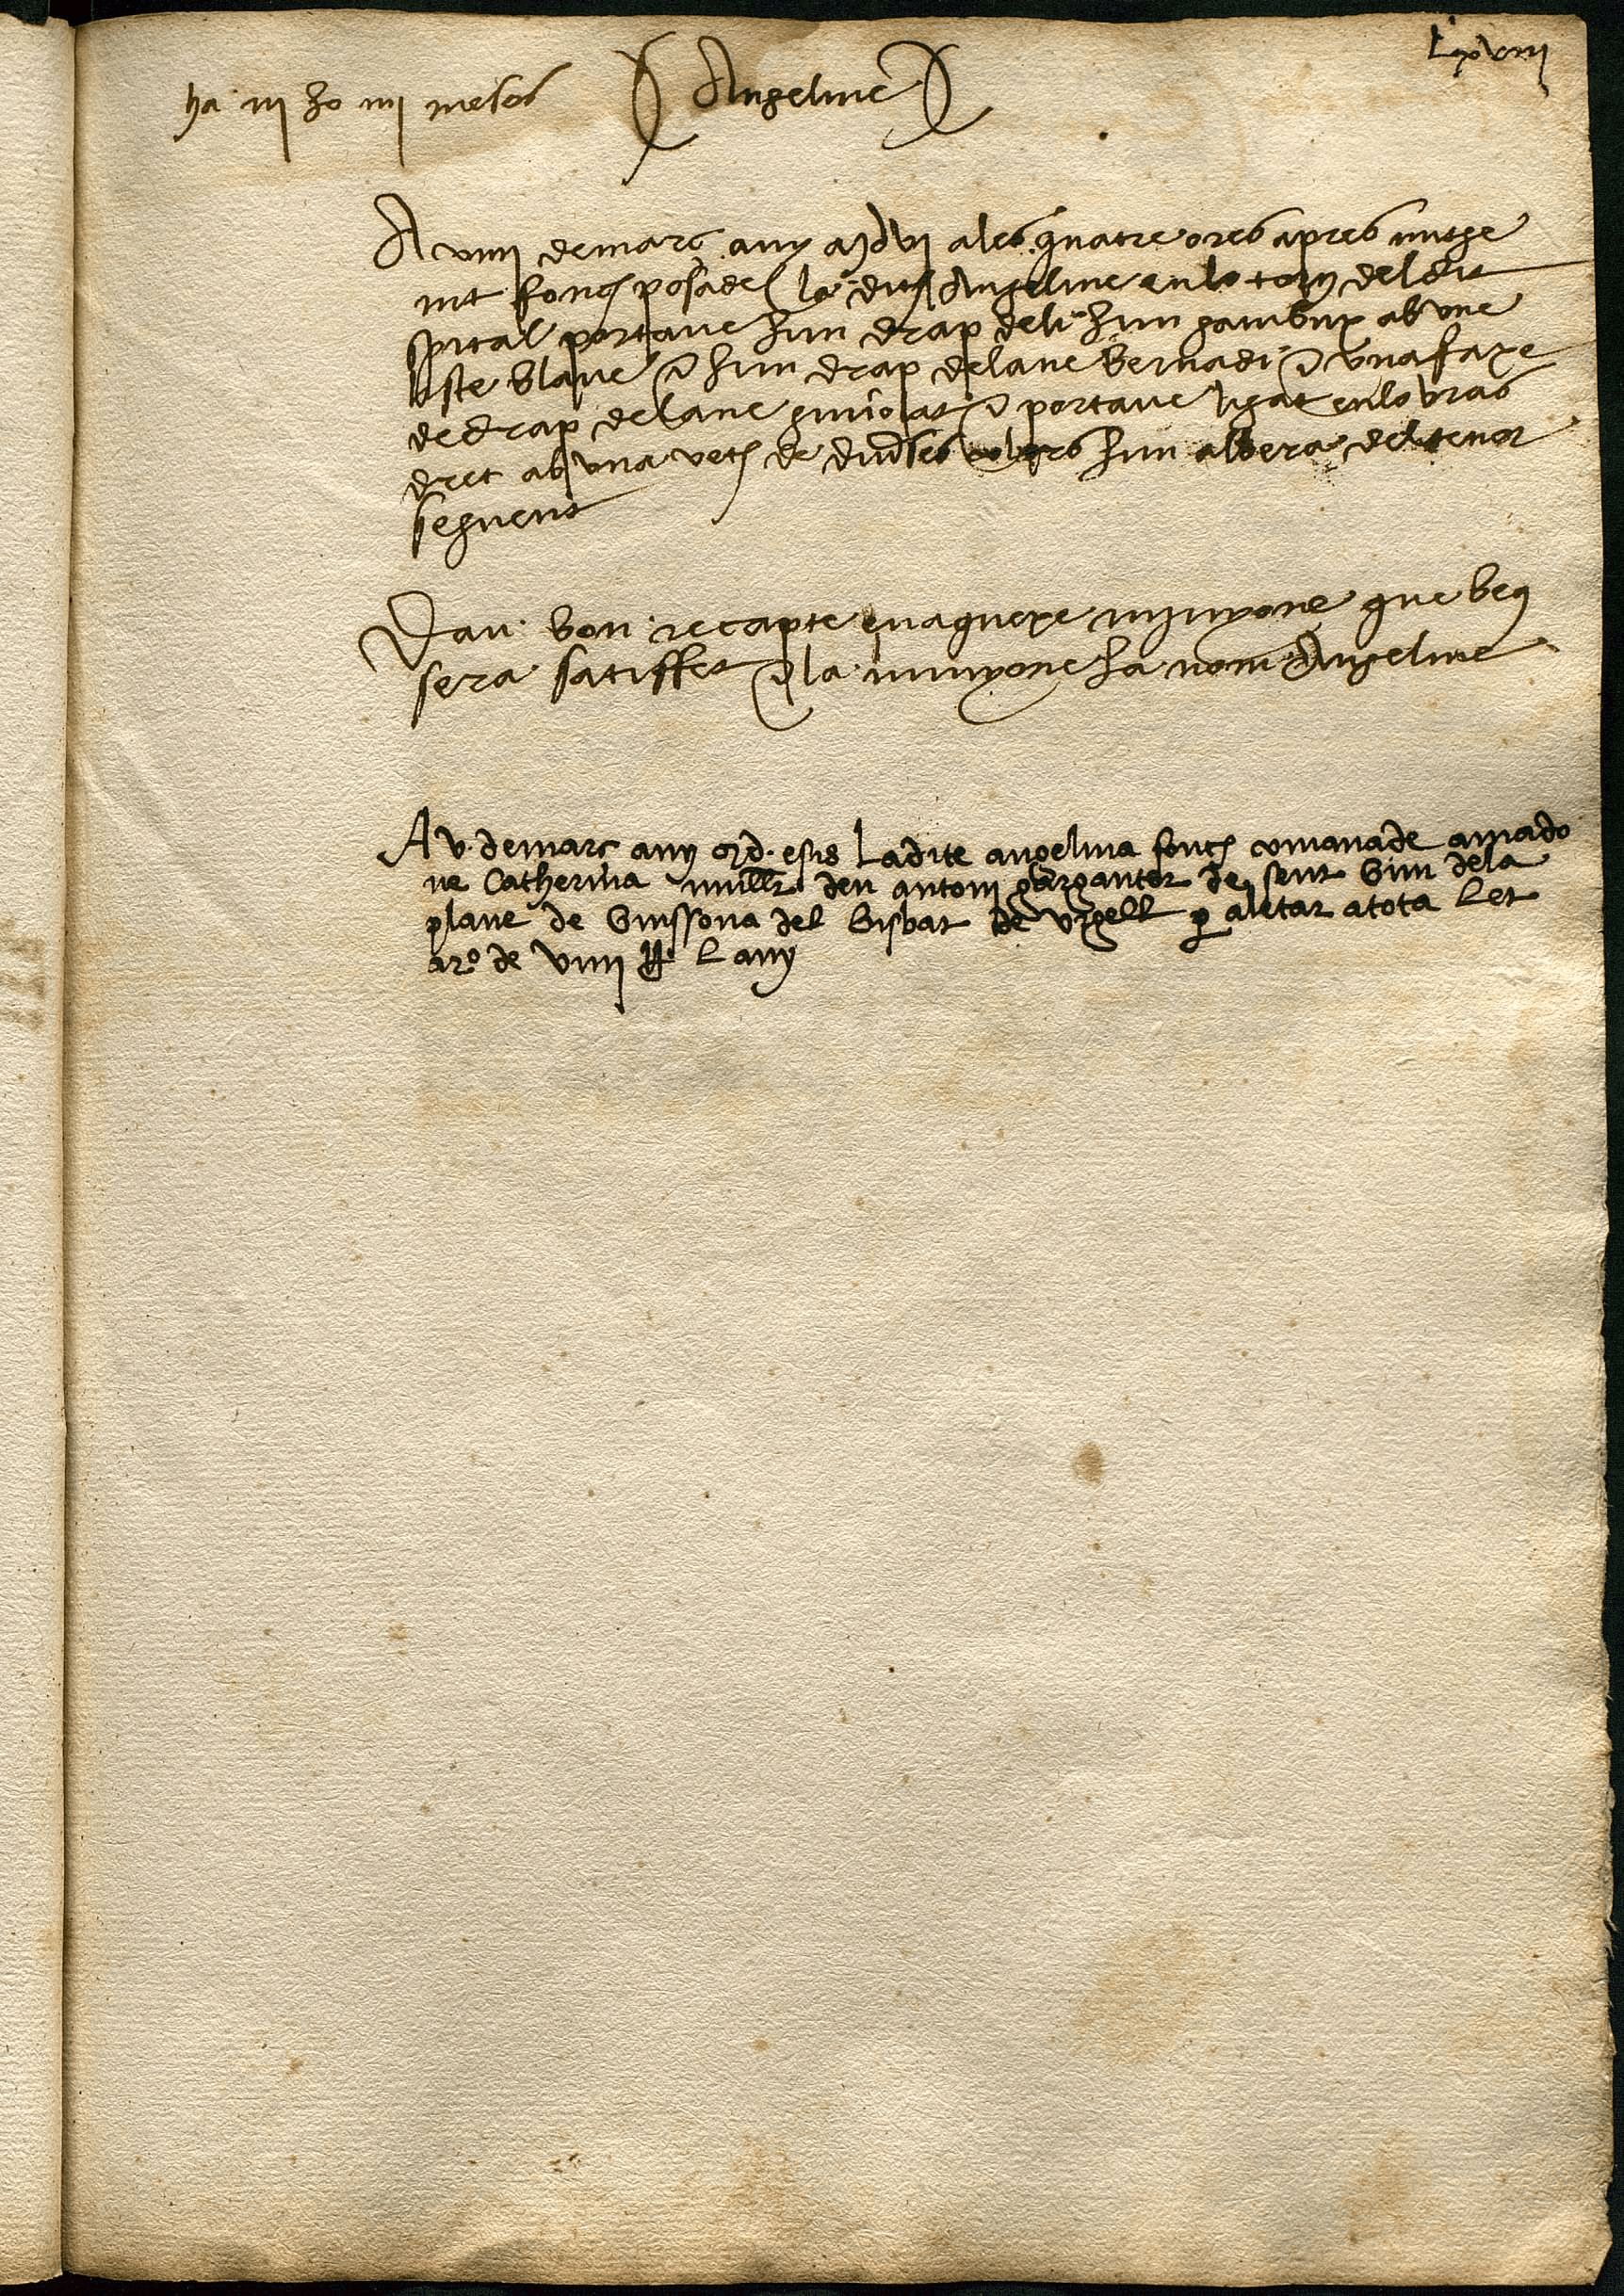 Lxviiii
ha iij ho iiij mesos
Angeline
A viiii de mars any mdvj a les quatre ores apres mitge
nit fonch posade la dita Angeline en lo torn del dit
spital portave hun drap de li hun gambux ab vne
liste blave e hun drap de lane bernadi e vna faxe
de drap de lane guiolat e portave ligat en lo bras
dret ab vna veta de diverses colors hun albera del tenor
seguent
Dau bon recapte en aquexe minyone que beu
sera satisffet e la minyone ha nom Angeline
A v de mars any md e sis La dite angelina fonch comanade a mado
ne Catherina muller den antoni garganter de sent Gim de la
plane de Guissona del bisbat de Vrgell per aletar a tota Let
a ro de viiii ll L any